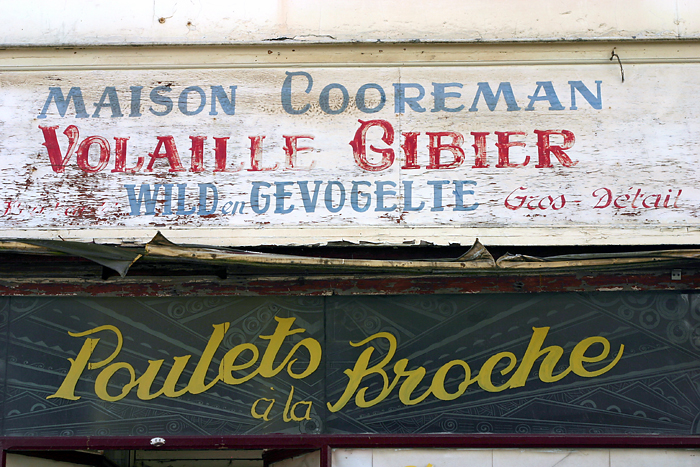 MAISON COOREMAN
VOLAILLE GIBIER
WILD en GEVOGELTE Gros - Détail
Poulets
à la Broche